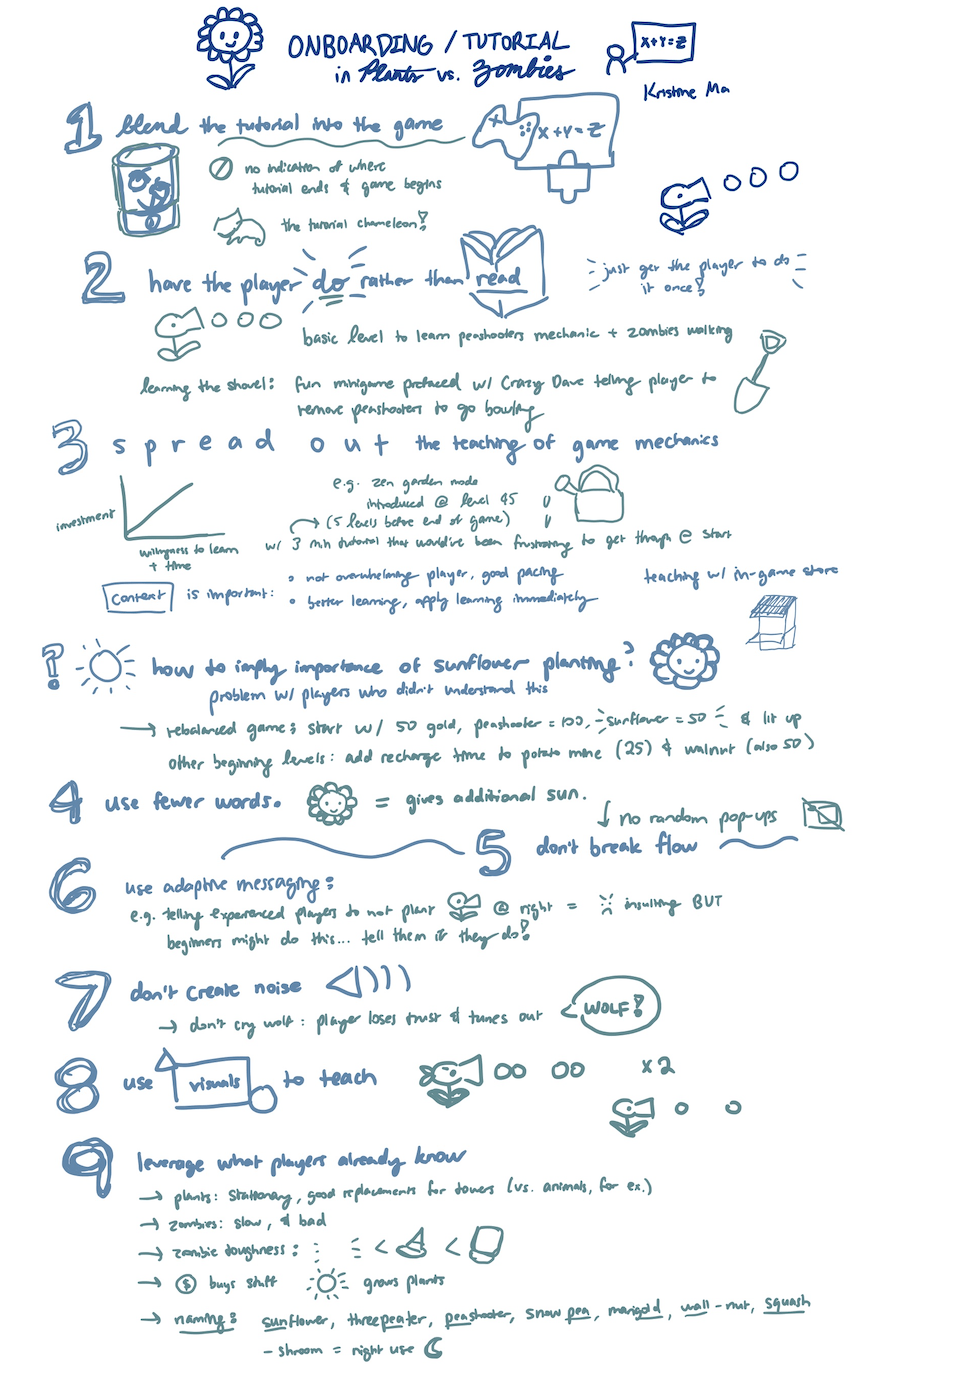 ONBOARDING / TUTORIAL
in Plants vs. Zombies
X+Y=Z
Kristine Ma
1 blend the tutorial into the game
X+Y=Z
no indication of where
tutorial ends & game begins
the tutorial chameleon!
2 have the player do rather than read
just get the player to do
it once!
basic level to learn peashooters mechanic + zombies walking
learning the shovel: fun minigame prefaced w/ Crazy Dave telling player to
remove peashooters to go bowling
3 spread out the teaching of game mechanics
investment
willingness to learn
+ time
e.g. zen garden mode
introduced @ level 45
(5 levels before end of game)
w/ 3 min tutorial that would've been frustrating to get through @ start
Context is important:
• not overwhelming player, good pacing
• better learning, apply learning immediately
teaching w/ in-game store
? how to imply importance of sunflower planting?
problem w/ players who didn't understand this
→ rebalanced game: start w/ 50 gold, peashooter = 100, sunflower = 50 & lit up
other beginning levels: add recharge time to potato mine (25) & walnut (also 50)
4 use fewer words. = gives additional sun.
↓ no random pop-ups
5 don't break flow
6 use adaptive messaging:
e.g. telling experienced players to not plant @ right = insulting BUT
beginners might do this... tell them if they do!
7 don't create noise
→ don't cry wolf: player loses trust & tunes out
WOLF!
8 use visuals to teach
x2
9 leverage what players already know
→ plants: stationary, good replacements for towers (vs. animals, for ex.)
→ zombies: slow, & bad
→ zombie toughness: < <
→ $ buys stuff grows plants
→ naming: sunflower, threepeater, peashooter, snow pea, marigold, wall-nut, squash
-shroom = night use